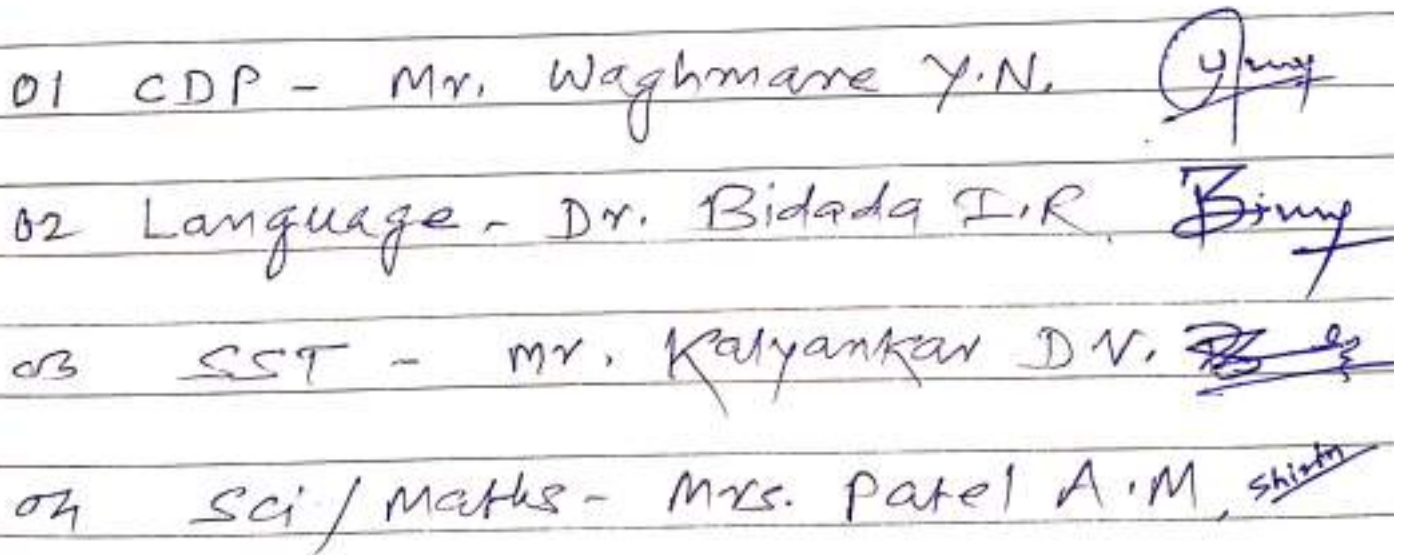 01 CDP - Mr. Waghmare Y.N.
02 Language - Dr. Bidada I.R.
03 SST - Mr. Kalyankar D N.
04 Sci / Maths - Mrs. Patel A.M.